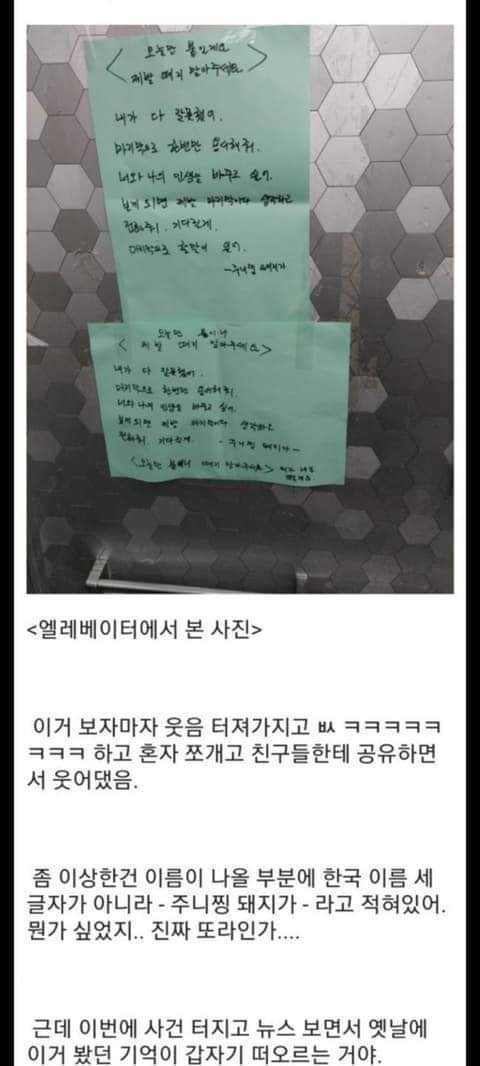 < 오늘만 붙일게요
제발 떼지 말아주세요 >
내가 다 잘못했어.
마지막으로 한번만 용서해줘.
너와 나의 인생을 바꾸고 싶어.
보게 되면 제발 마지막이다 생각하고
전화줘. 기다릴게.
마지막으로 할말이 있어.
-주니찡 돼지가
오늘만 붙이니
< 제발 떼지 말아주세요 >
내가 다 잘못했어.
마지막으로 한번만 용서해줘.
너와 나의 인생을 바꾸고 싶어.
보게 되면 제발 마지막이다 생각하고
전화줘. 기다릴게. - 주니찡 돼지가 -
<오늘만 떼지 말아주세요>
<엘레베이터에서 본 사진>
이거 보자마자 웃음 터져가지고 ㅄ ㅋㅋㅋㅋㅋ
ㅋㅋㅋ 하고 혼자 쪼개고 친구들한테 공유하면
서 웃어댔음.
좀 이상한건 이름이 나올 부분에 한국 이름 세
글자가 아니라 - 주니찡 돼지가 - 라고 적혀있어.
뭔가 싶었지.. 진짜 또라인가....
근데 이번에 사건 터지고 뉴스 보면서 옛날에
이거 봤던 기억이 갑자기 떠오르는 거야.